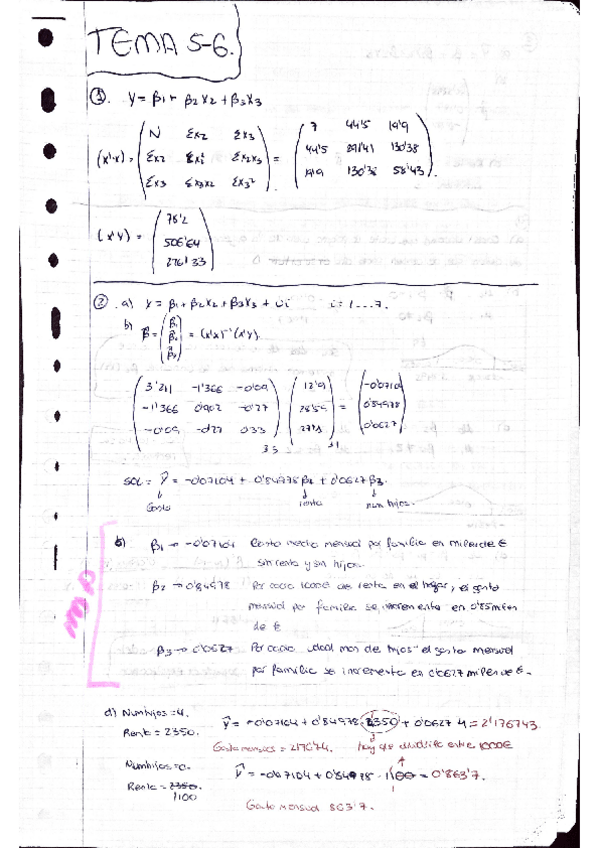 TEMA 5-6.
①. Y = β1 + β2X2 + β3X3
(X'X) = ( N Σx2 Σx3 ) = ( 7 44'5 19'9 )
Σx2 Σx2² Σx2x3 44'5 291'41 130'38
Σx3 Σx3x2 Σx3² 19'9 130'38 58'43
(X'Y) = ( 78'2
506'64
226'33 )
② a) Y = β1 + β2X2 + β3X3 + Ui i = 1....7.
b) β̂ = ( β̂1 β̂2 β̂3 ) = (X'X)⁻¹ (X'Y).
( 3'211 -1'366 -0'09 ) ( 12'9 ) = ( -0'07104 )
-1'366 0'902 -0'27 28'59 0'84978
-0'09 -0'27 0'33 0'0627
33 31
SOL = Ŷ = -0'07104 + 0'84978 β2 + 0'0627 β3.
Gasto renta num hijos.
β1 → -0'07104 Gasto medio mensual por familia en miles de €
sin renta y sin hijos.
β2 → 0'84978 Por cada 1000€ de renta en el hogar, el gasto
mensual por familia se incrementa en 0'85 miles
de €
β3 → 0'0627 Por cada udad mas de hijos el gasto mensual
por familia se incrementa en 0'0627 miles de €.
d) Numhijos = 4.
Renta = 2350.
Ŷ = -0'07104 + 0'84978 · 2350 + 0'0627 · 4 = 2'176743.
Gasto mensual = 2176'74. hay que dividirlo entre 1000€
Numhijos = 0.
Renta = 2350.
1100
Ŷ = -0'07104 + 0'84978 · 1100 = 0'8637.
Gasto mensual 863'7.